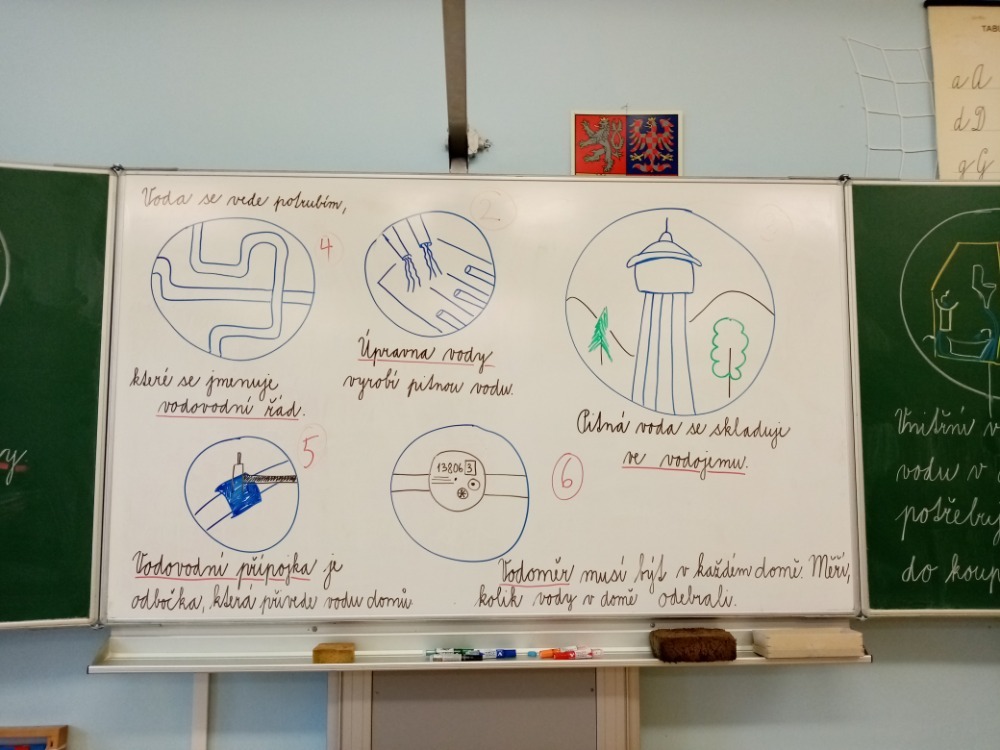 TAB
a A
d D
g G
Voda se vede potrubím,
4
které se jmenuje
vodovodní řád.
2.
Úpravna vody
vyrobí pitnou vodu.
Pitná voda se skladuje
ve vodojemu.
5
Vodovodní přípojka je
odbočka, která přivede vodu domů.
13806 3
6
Vodoměr musí být v každém domě. Měří,
kolik vody v domě odebrali.
y.
Vnitřní
vodu v
potřebuj
do koup